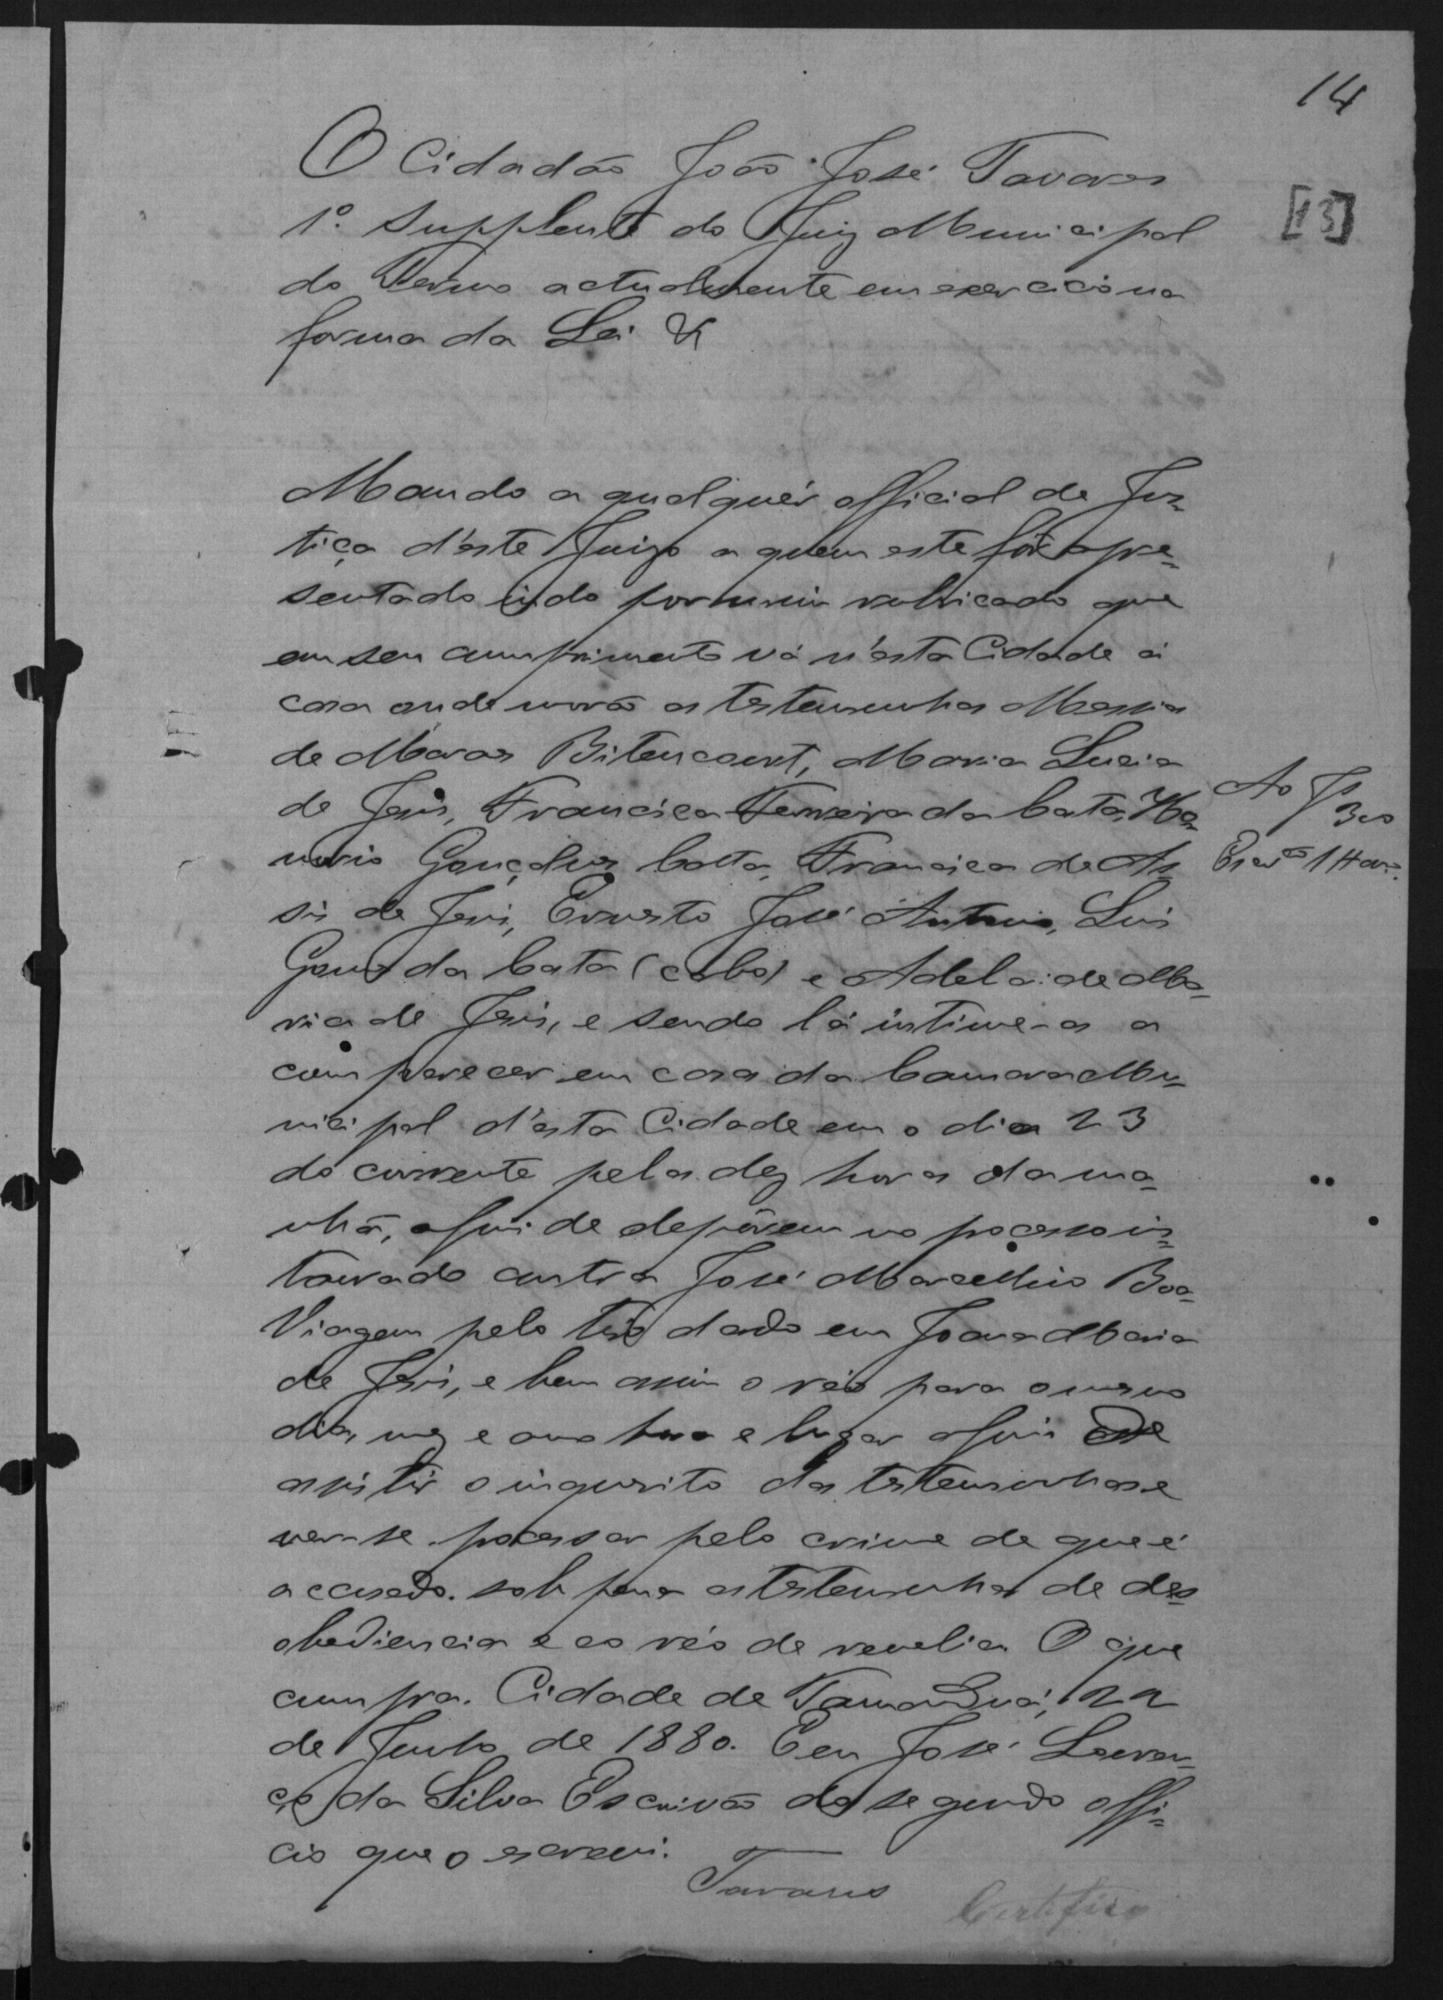 14
[13]
O Cidadão João José Tavares
1º. Supplente do Juiz Municipal
do Termo actualmente em exercicio na
forma da Lei &
Mando a qualquér official de Jus-
tiça d'este Juizo a quem este fôr apre-
sentado indo por mim rubricado que
em seu cumprimento vá n'esta Cidade á
casa onde morão as testemunhas Messia
de Moraes Bitencourt, Maria Lucia
de Jesus, Francisca Ferreira da Costa, Ho-
norio Gonçalves Costa, Francisca de As-
sis de Jesus, Ernesto José Antonio, Luis
Gomes da Costa (cabo) e Adelaide Ma-
ria de Jesus, e sendo lá intime-as a
comparecer em casa da Camara Mu-
nicipal d'esta Cidade em o dia 23
do corrente pelas dez horas da ma-
nhã, afim de depôrem no pocesso ins-
taurado contra José Marcellino Boa-
Viagem pelo tiro dado em Joana Maria
de Jesus, e bem assim o réo para o mesmo
dia, mez e anno hora e lugar afim de
assistir o inquerito das testemunhas e
ver-se pocessar pelo crime de que é
accusado. sob pena as testemunhas de des-
obediencia e ao réo de revelia. O que
cumpra. Cidade de Tamanduá, 22
de Junho de 1880. E eu José Louren-
ço da Silva Escrivão do segundo offi-
cio que o escrevi.
Tavares
Certifico
Ao Js